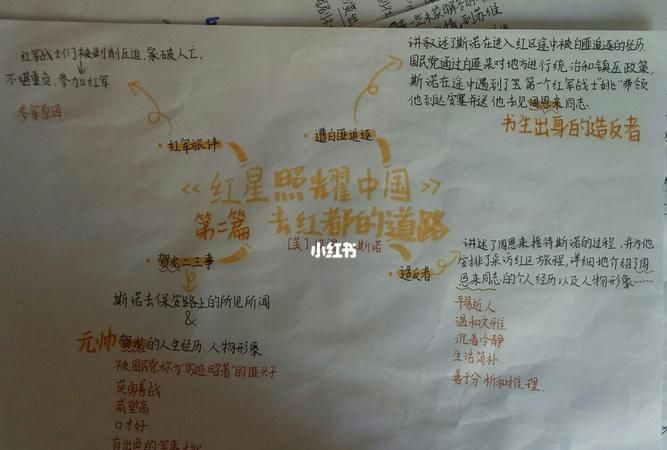 红军战士们被剥削压迫，家破人亡，
不堪重负，参加红军
参军原因
红军旅伴
讲叙述了斯诺在进入红区途中被白匪追逐的经历.
国民党通过白匪来对地方进行统治和镇压政策，
斯诺在途中遇到了第一个红军战士"他"带领
他到达安塞并送他去见周恩来同志.
书生出身的造反者
遭白匪追逐
《红星照耀中国》
第二篇 去红都的道路
[美] 斯诺
小红书
贺龙二三事
斯诺去保安路上的所见所闻
&
元帅贺龙的人生经历、人物形象
被国民党称为"劣迹昭著"的匪头子
英勇善战
威望高
口才好
造反者
讲述了周恩来接待斯诺的过程，并为他
安排了采访红区旅程，详细地介绍了周
恩来同志的个人经历以及人物形象……
平易近人
温和文雅
沉着冷静
生活简朴
善于分析和推理.